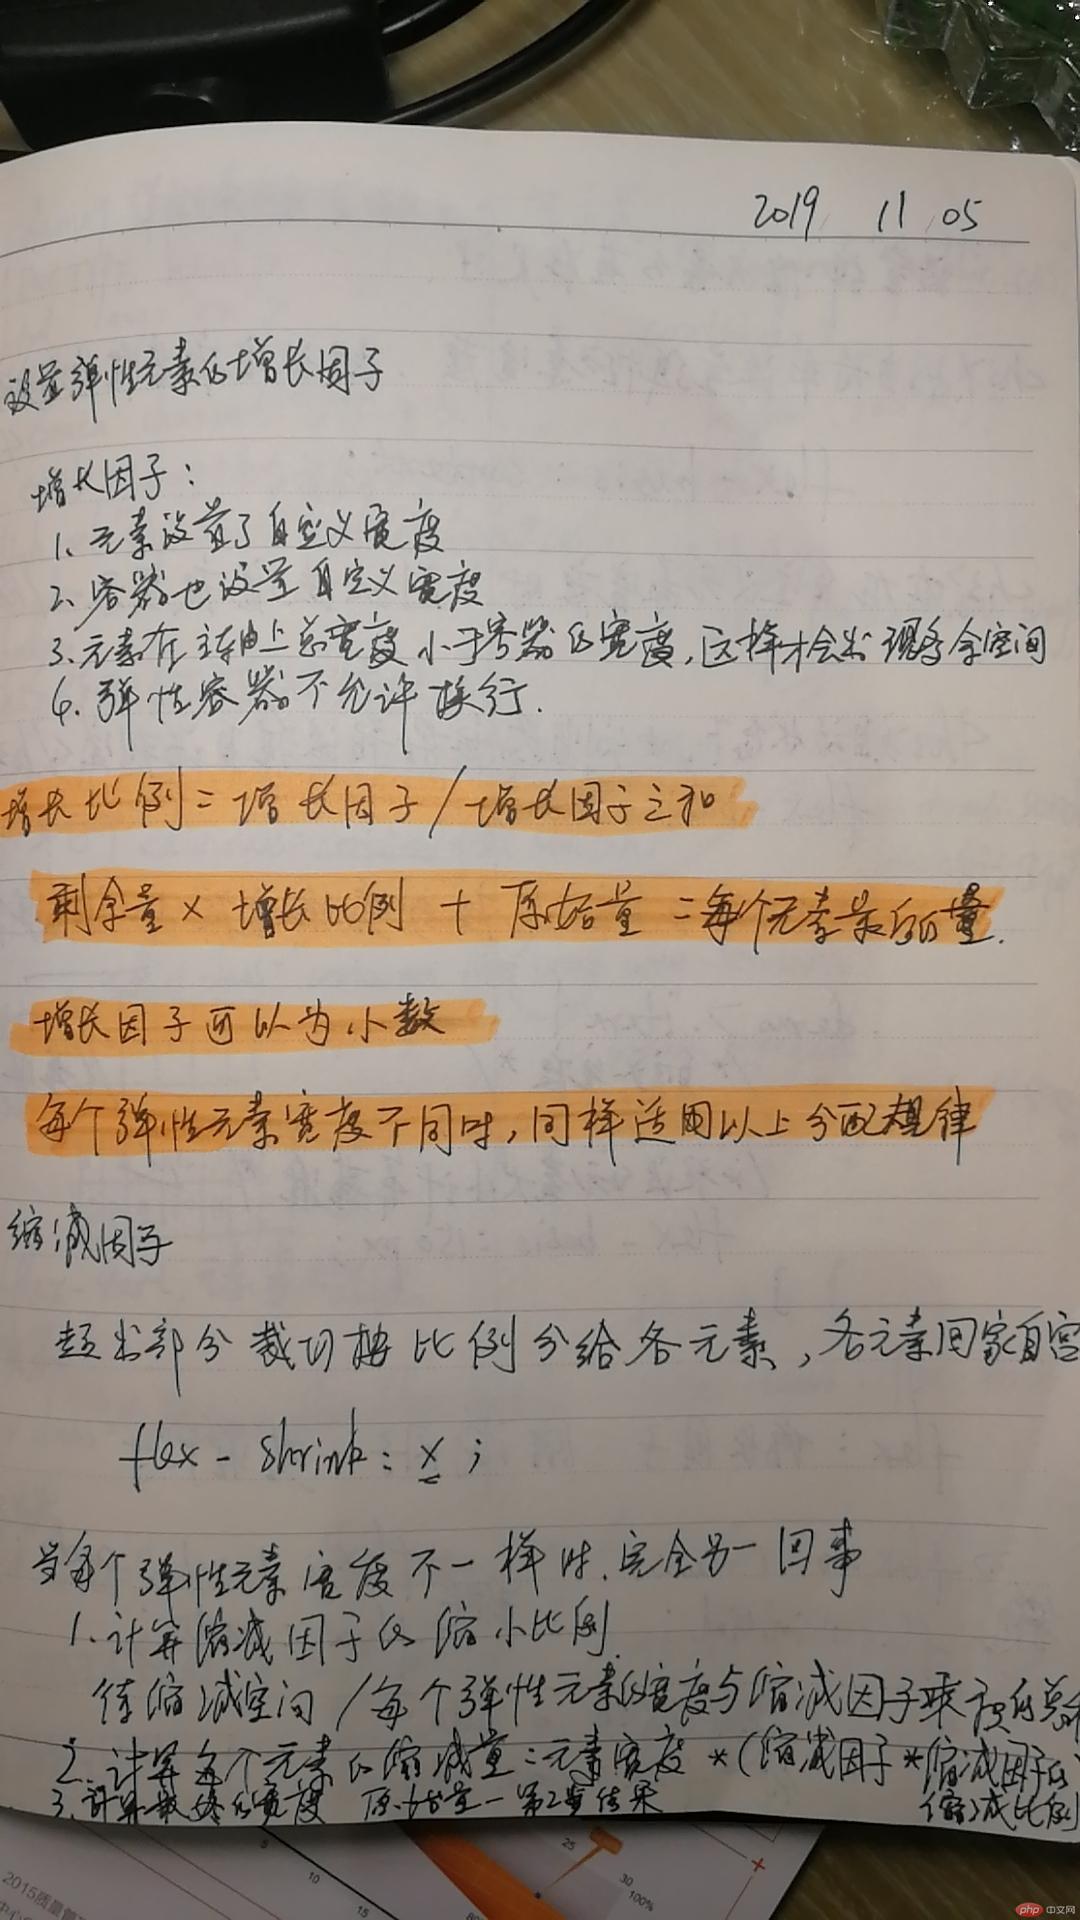 2019 11 05
设置弹性元素的增长因子
增长因子：
1、元素设置了自定义宽度
2、容器也设置自定义宽度
3、元素在主轴上总宽度小于容器的宽度，这样才会出现多余空间
4、弹性容器不允许换行.
增长比例 = 增长因子 / 增长因子之和
剩余量 × 增长比例 + 原始量 = 每个元素最的量.
增长因子可以为小数
每个弹性元素宽度不同时，同样适用以上分配规律
缩减因子
超出部分裁切按比例分给各元素，各元素回家自宫
flex-shrink: x ;
当每个弹性元素宽度不一样时.完全另一回事
1.计算缩减因子的缩小比例
待缩减空间 / 每个弹性元素的宽度与缩减因子乘积的总和
2.计算每个元素的缩减量=元素宽度 *(缩减因子*缩减因子的
缩减比例
3.计算最终的宽度 原始量-第2步结果
2015质量管
5
10
15
25
30
100%
php中文网